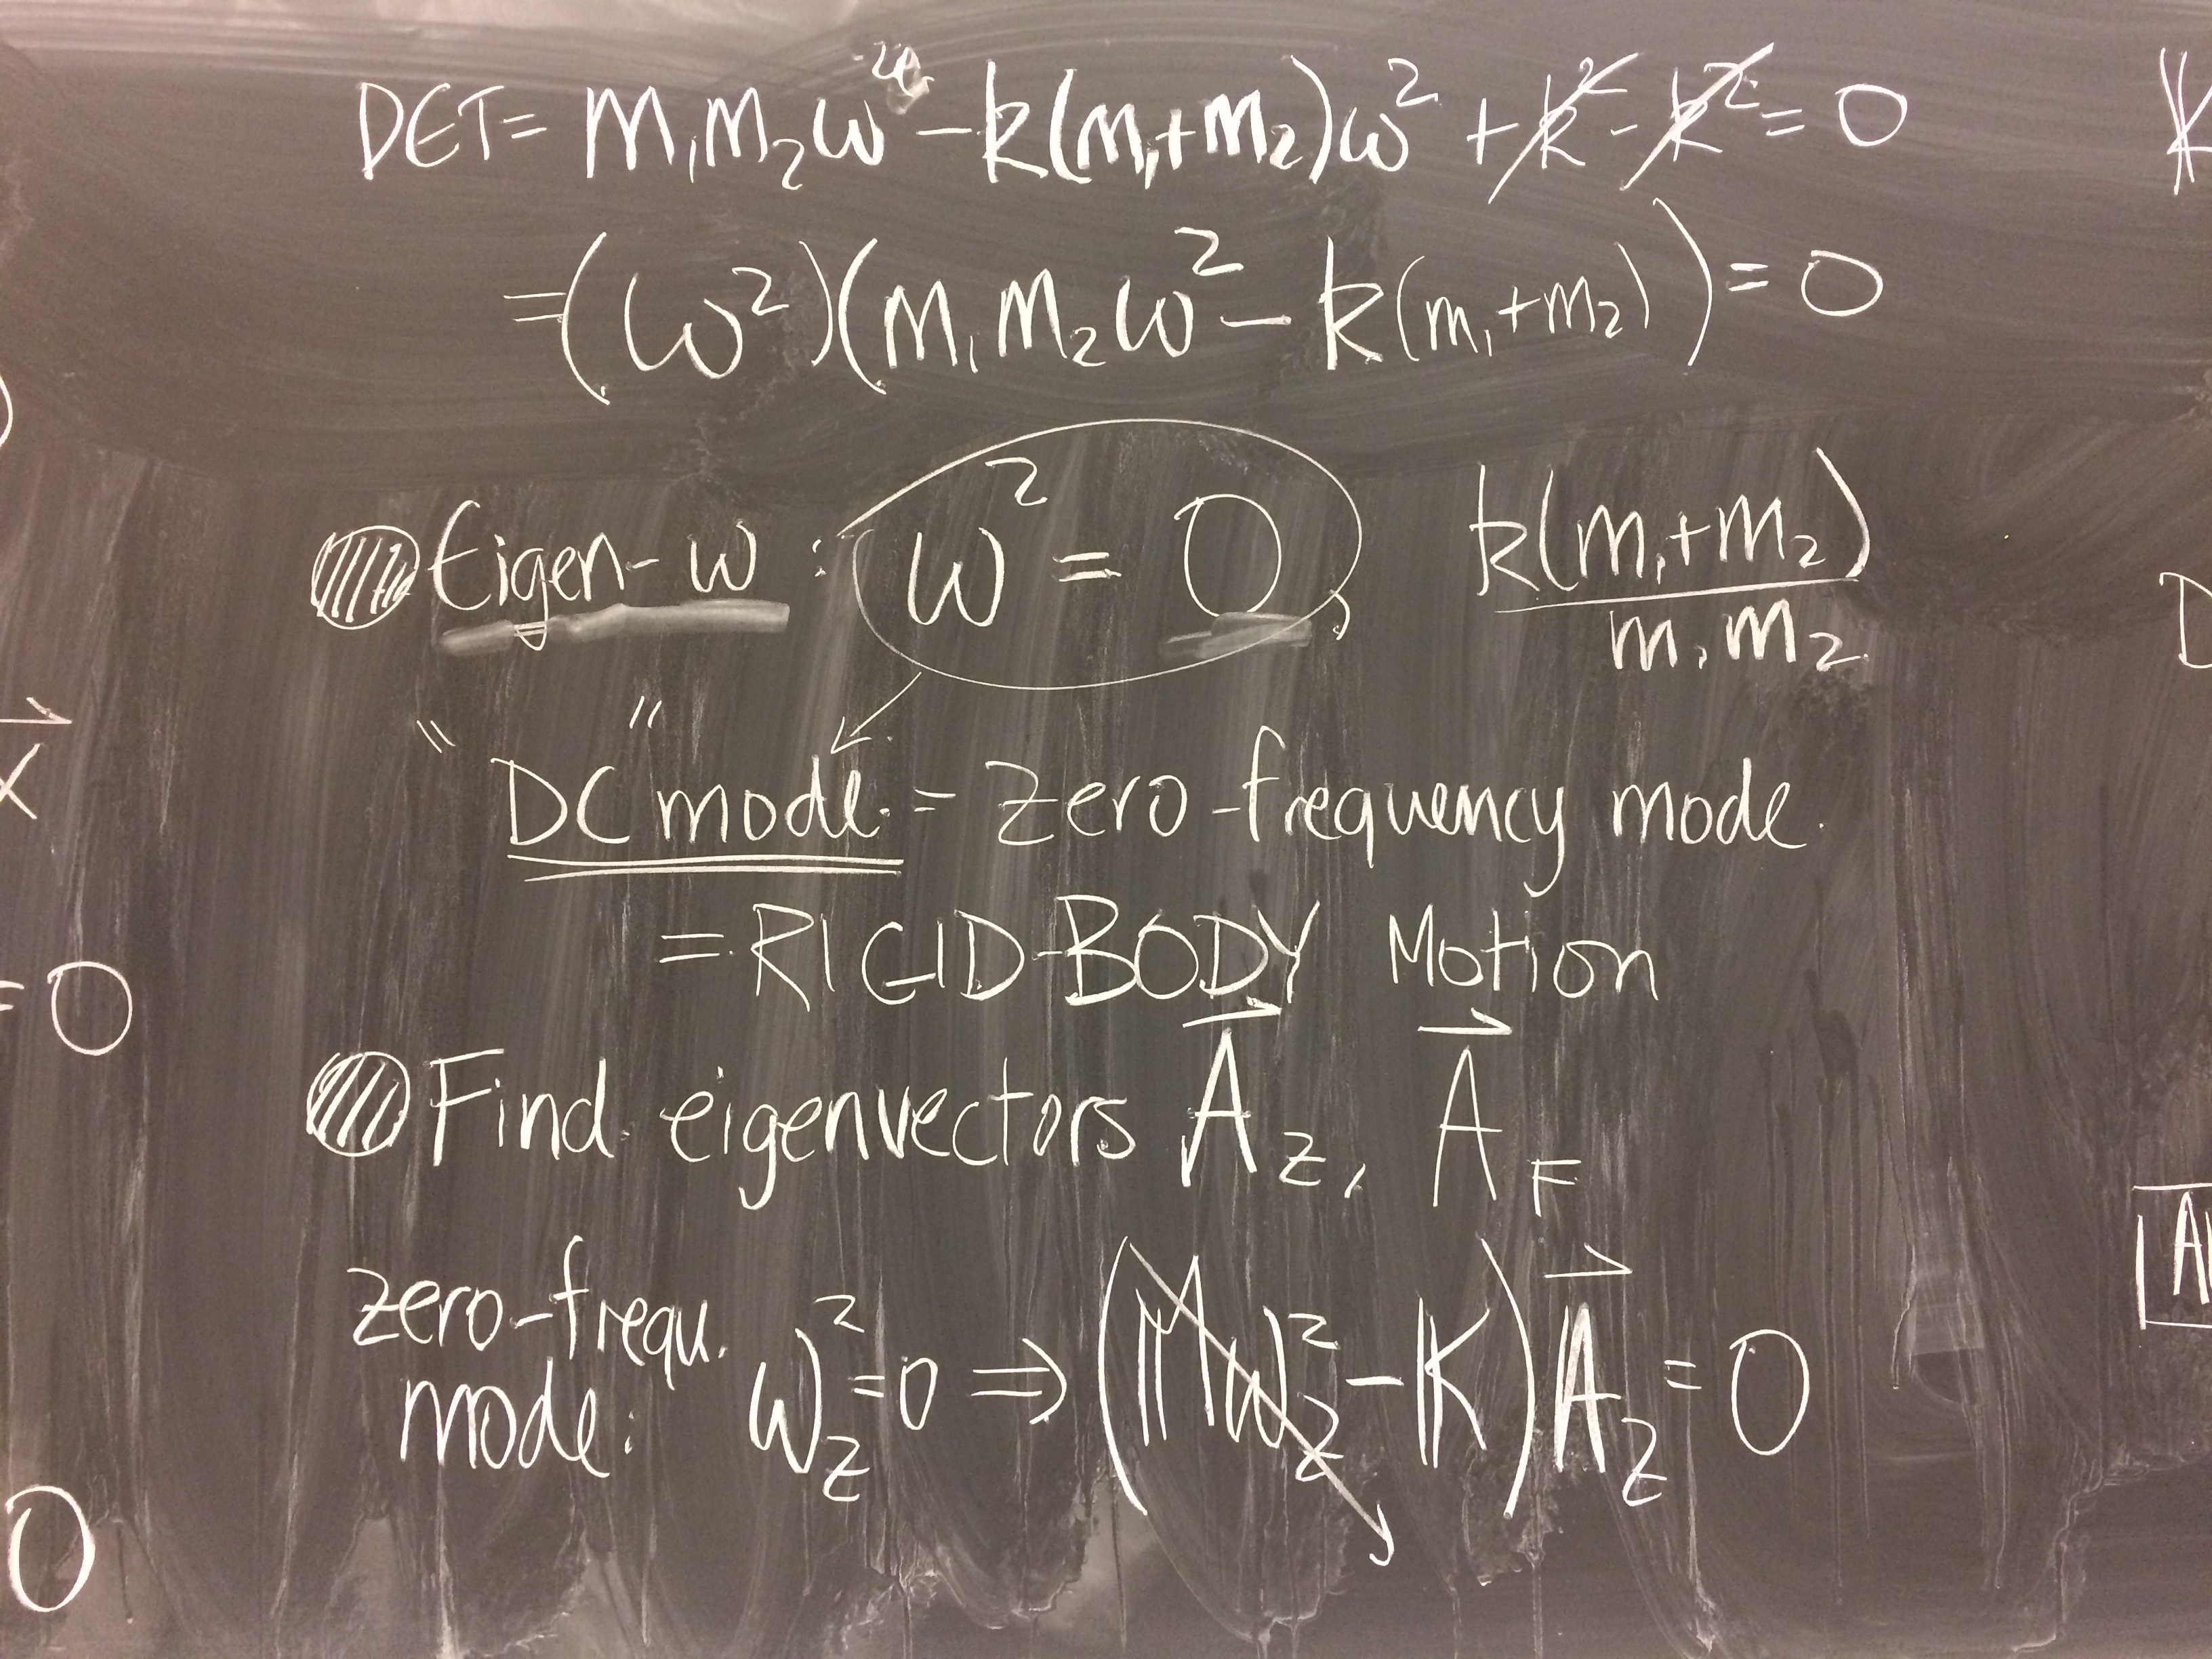 DET = m₁m₂ω – k(m₁+m₂)ω² + k² - k² = 0
= (ω²)(m₁m₂ω² – k(m₁+m₂)) = 0
Eigen-ω : ω² = 0, k(m₁+m₂)/m₁m₂
"DC" mode = zero-frequency mode.
= RIGID-BODY Motion
Find eigenvectors A⃗_Z, A⃗_F
zero-frequ. mode: ω_Z² = 0 ⇒ (Mω_Z² – K) A⃗_Z = 0
x⃗
= 0
0